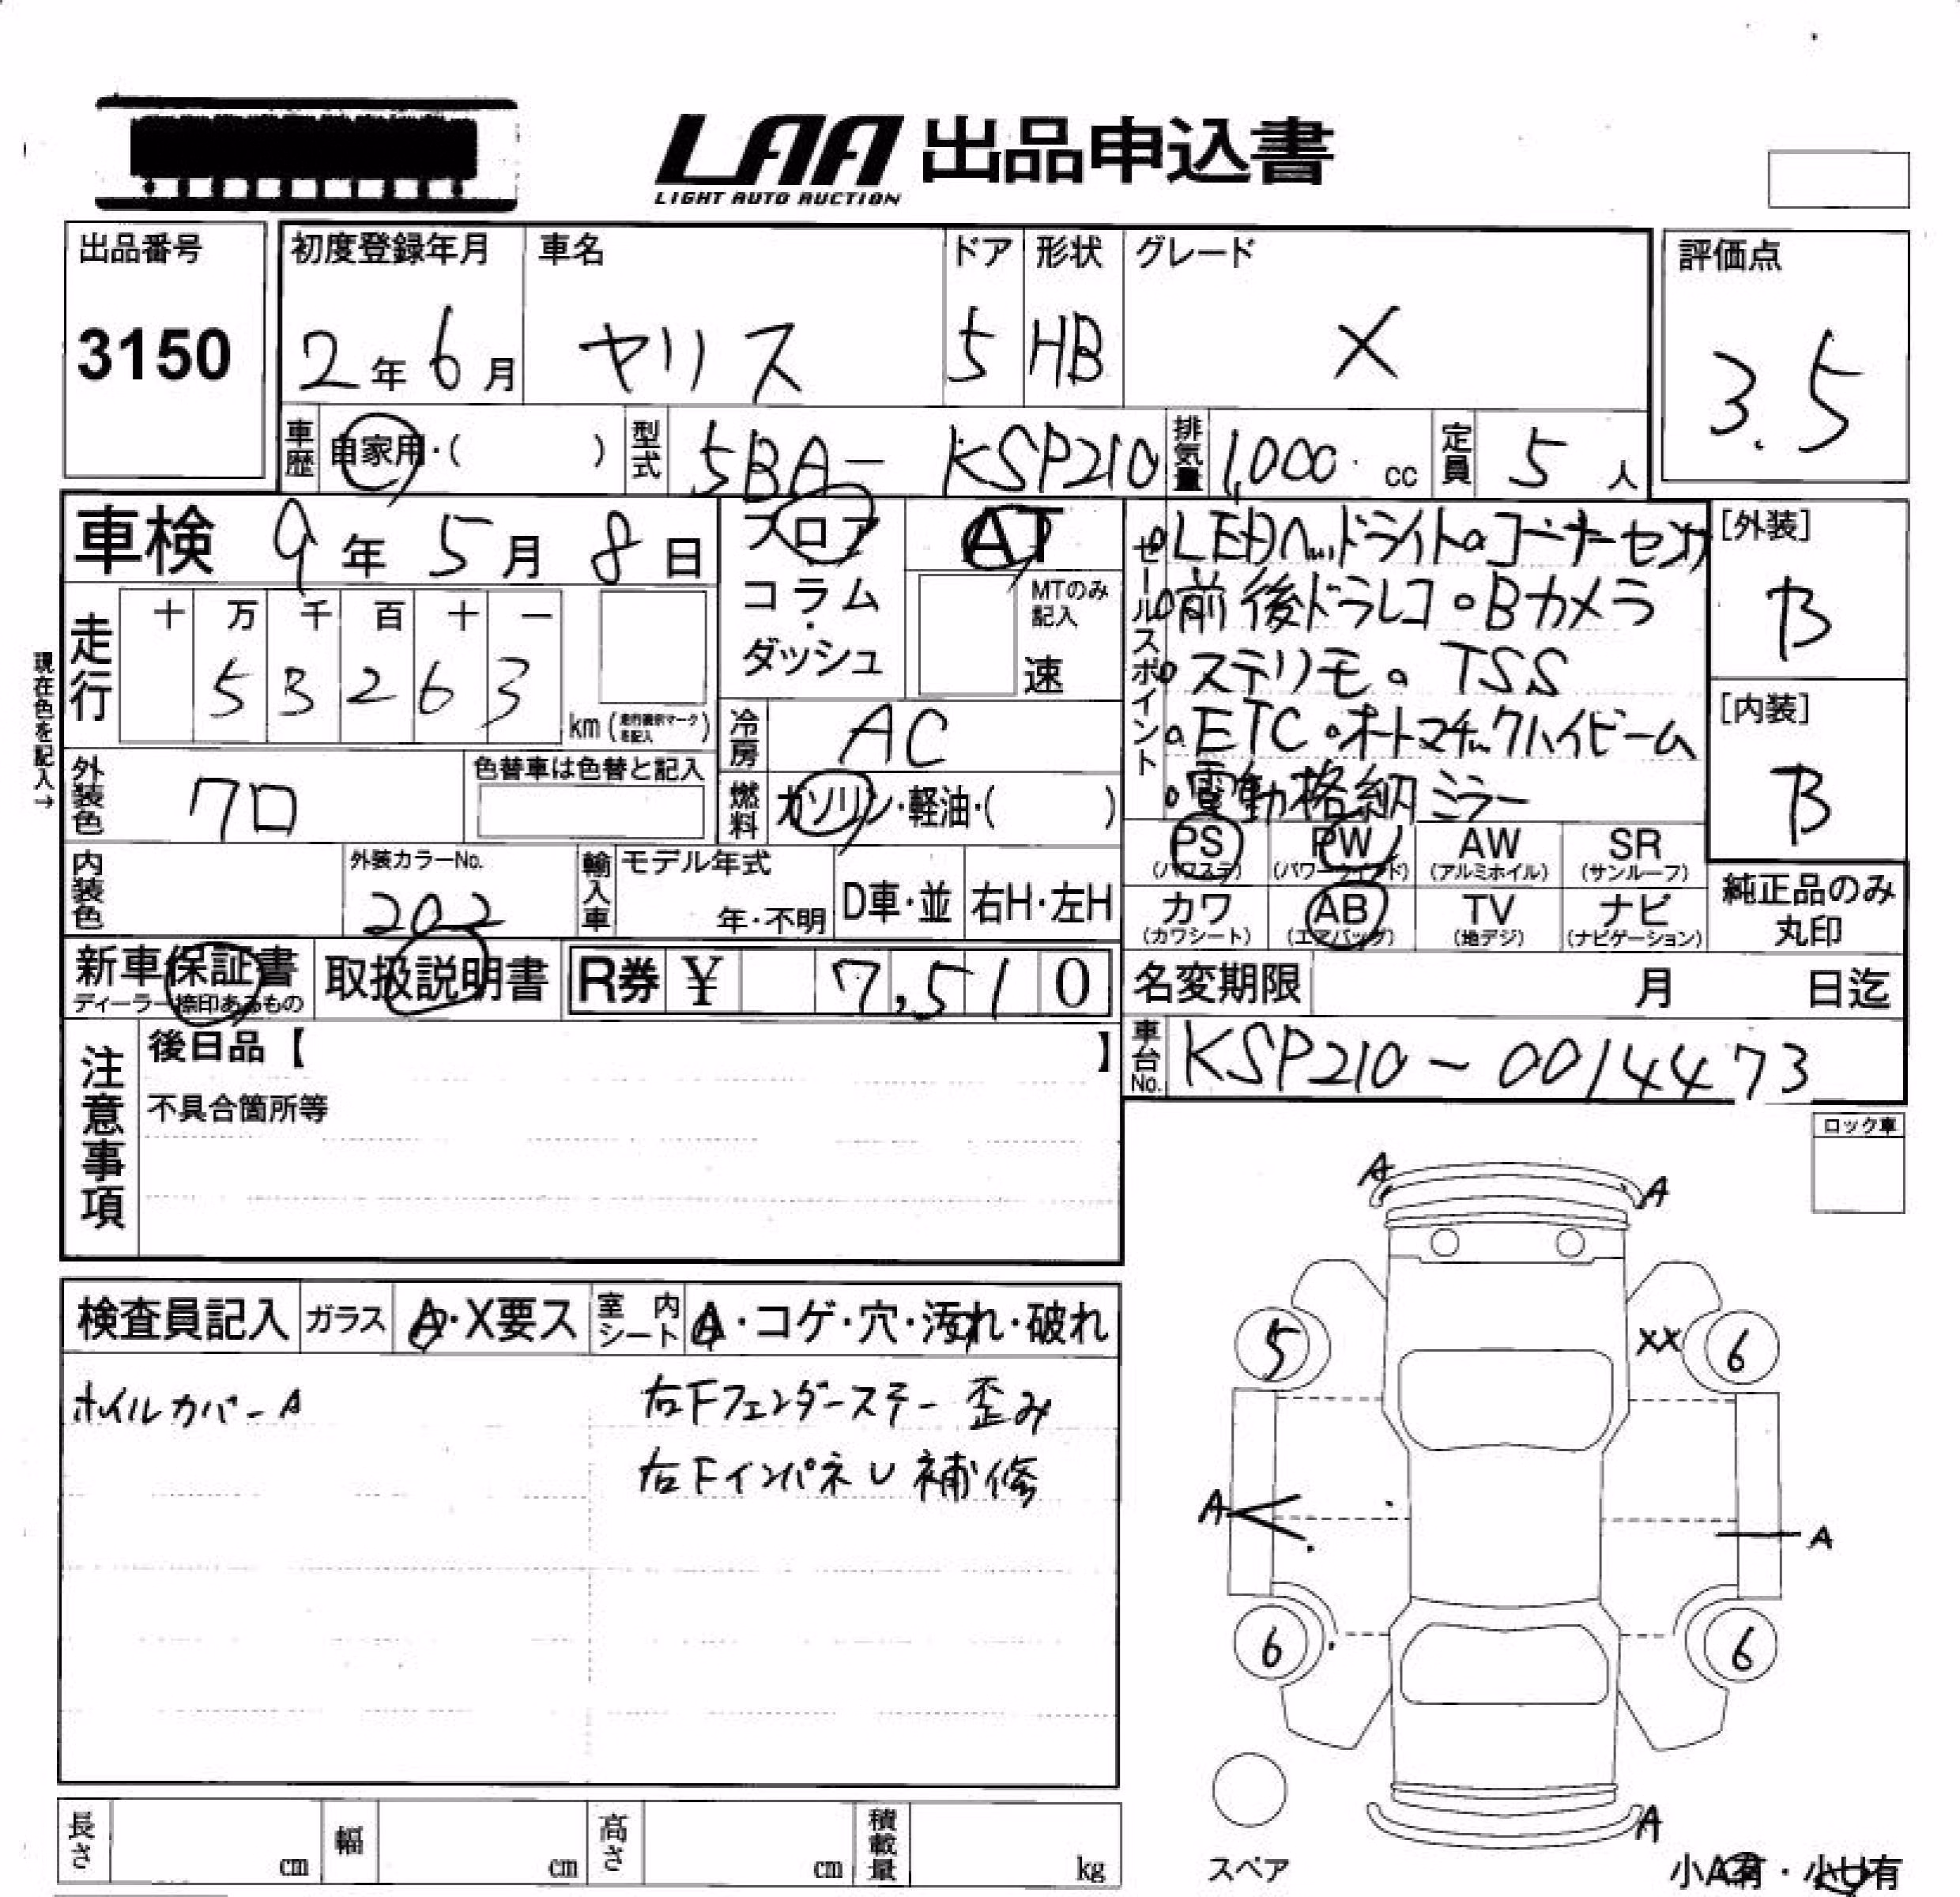 LAA 出品申込書
LIGHT AUTO AUCTION
出品番号
3150
初度登録年月
2年6月
車名
ヤリス
ドア
5
形状
HB
グレード
X
評価点
3.5
車歴 自家用・( )
型式 5BA- KSP210
排気量 1,000 cc
定員 5 人
車検 9年5月8日
フロア
コラム
・
ダッシュ
AT
MTのみ
記入
速
現在色を記入→
走行
十 万 千 百 十 一
5 3 2 6 3
km (走行表示マークを記入)
冷房 AC
燃料 ガソリン・軽油・( )
外装色 クロ
色替車は色替と記入
内装色
外装カラーNo.
202
輸入車
モデル年式
年・不明
D車・並
右H・左H
セールスポイント
・LEDヘッドライト・コーナーセンサ
・前後ドラレコ・Bカメラ
・ステリモ・TSS
・ETC・オートマチックハイビーム
・電動格納ミラー
[外装]
B
[内装]
B
PS (パワステ)
PW (パワーウィンド)
AW (アルミホイル)
SR (サンルーフ)
カワ (カワシート)
AB (エアバッグ)
TV (地デジ)
ナビ (ナビゲーション)
純正品のみ
丸印
新車保証書
ディーラー捺印あるもの
取扱説明書
R券 ¥ 7,510
名変期限 月 日迄
車台No. KSP210-0014473
注意事項
後日品【 】
不具合箇所等
ロック車
検査員記入
ガラス A・X要ス
室内シート A・コゲ・穴・汚れ・破れ
ホイルカバーA
右Fフェンダーステー歪み
右FインパネU補修
A
A
5
XX
6
A
A
6
6
A
スペア
小A有・小U有
長さ cm
幅 cm
高さ cm
積載量 kg